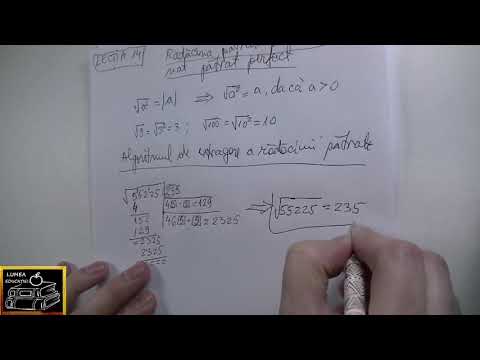 LECȚIA 14 Rădăcina
nat pătrat perfect
√a² = |a| ⇒ √a² = a, dacă a > 0
√9 = √3² = 3 ; √100 = √10² = 10
Algoritmul de extragere a rădăcinii pătrate
√55225 | 235
4 | 43 · 3 = 129
152 | 465 · 5 = 2325
129
=2325
2325
====
⇒ √55225 = 235
LUMEA
EDUCAȚIEI